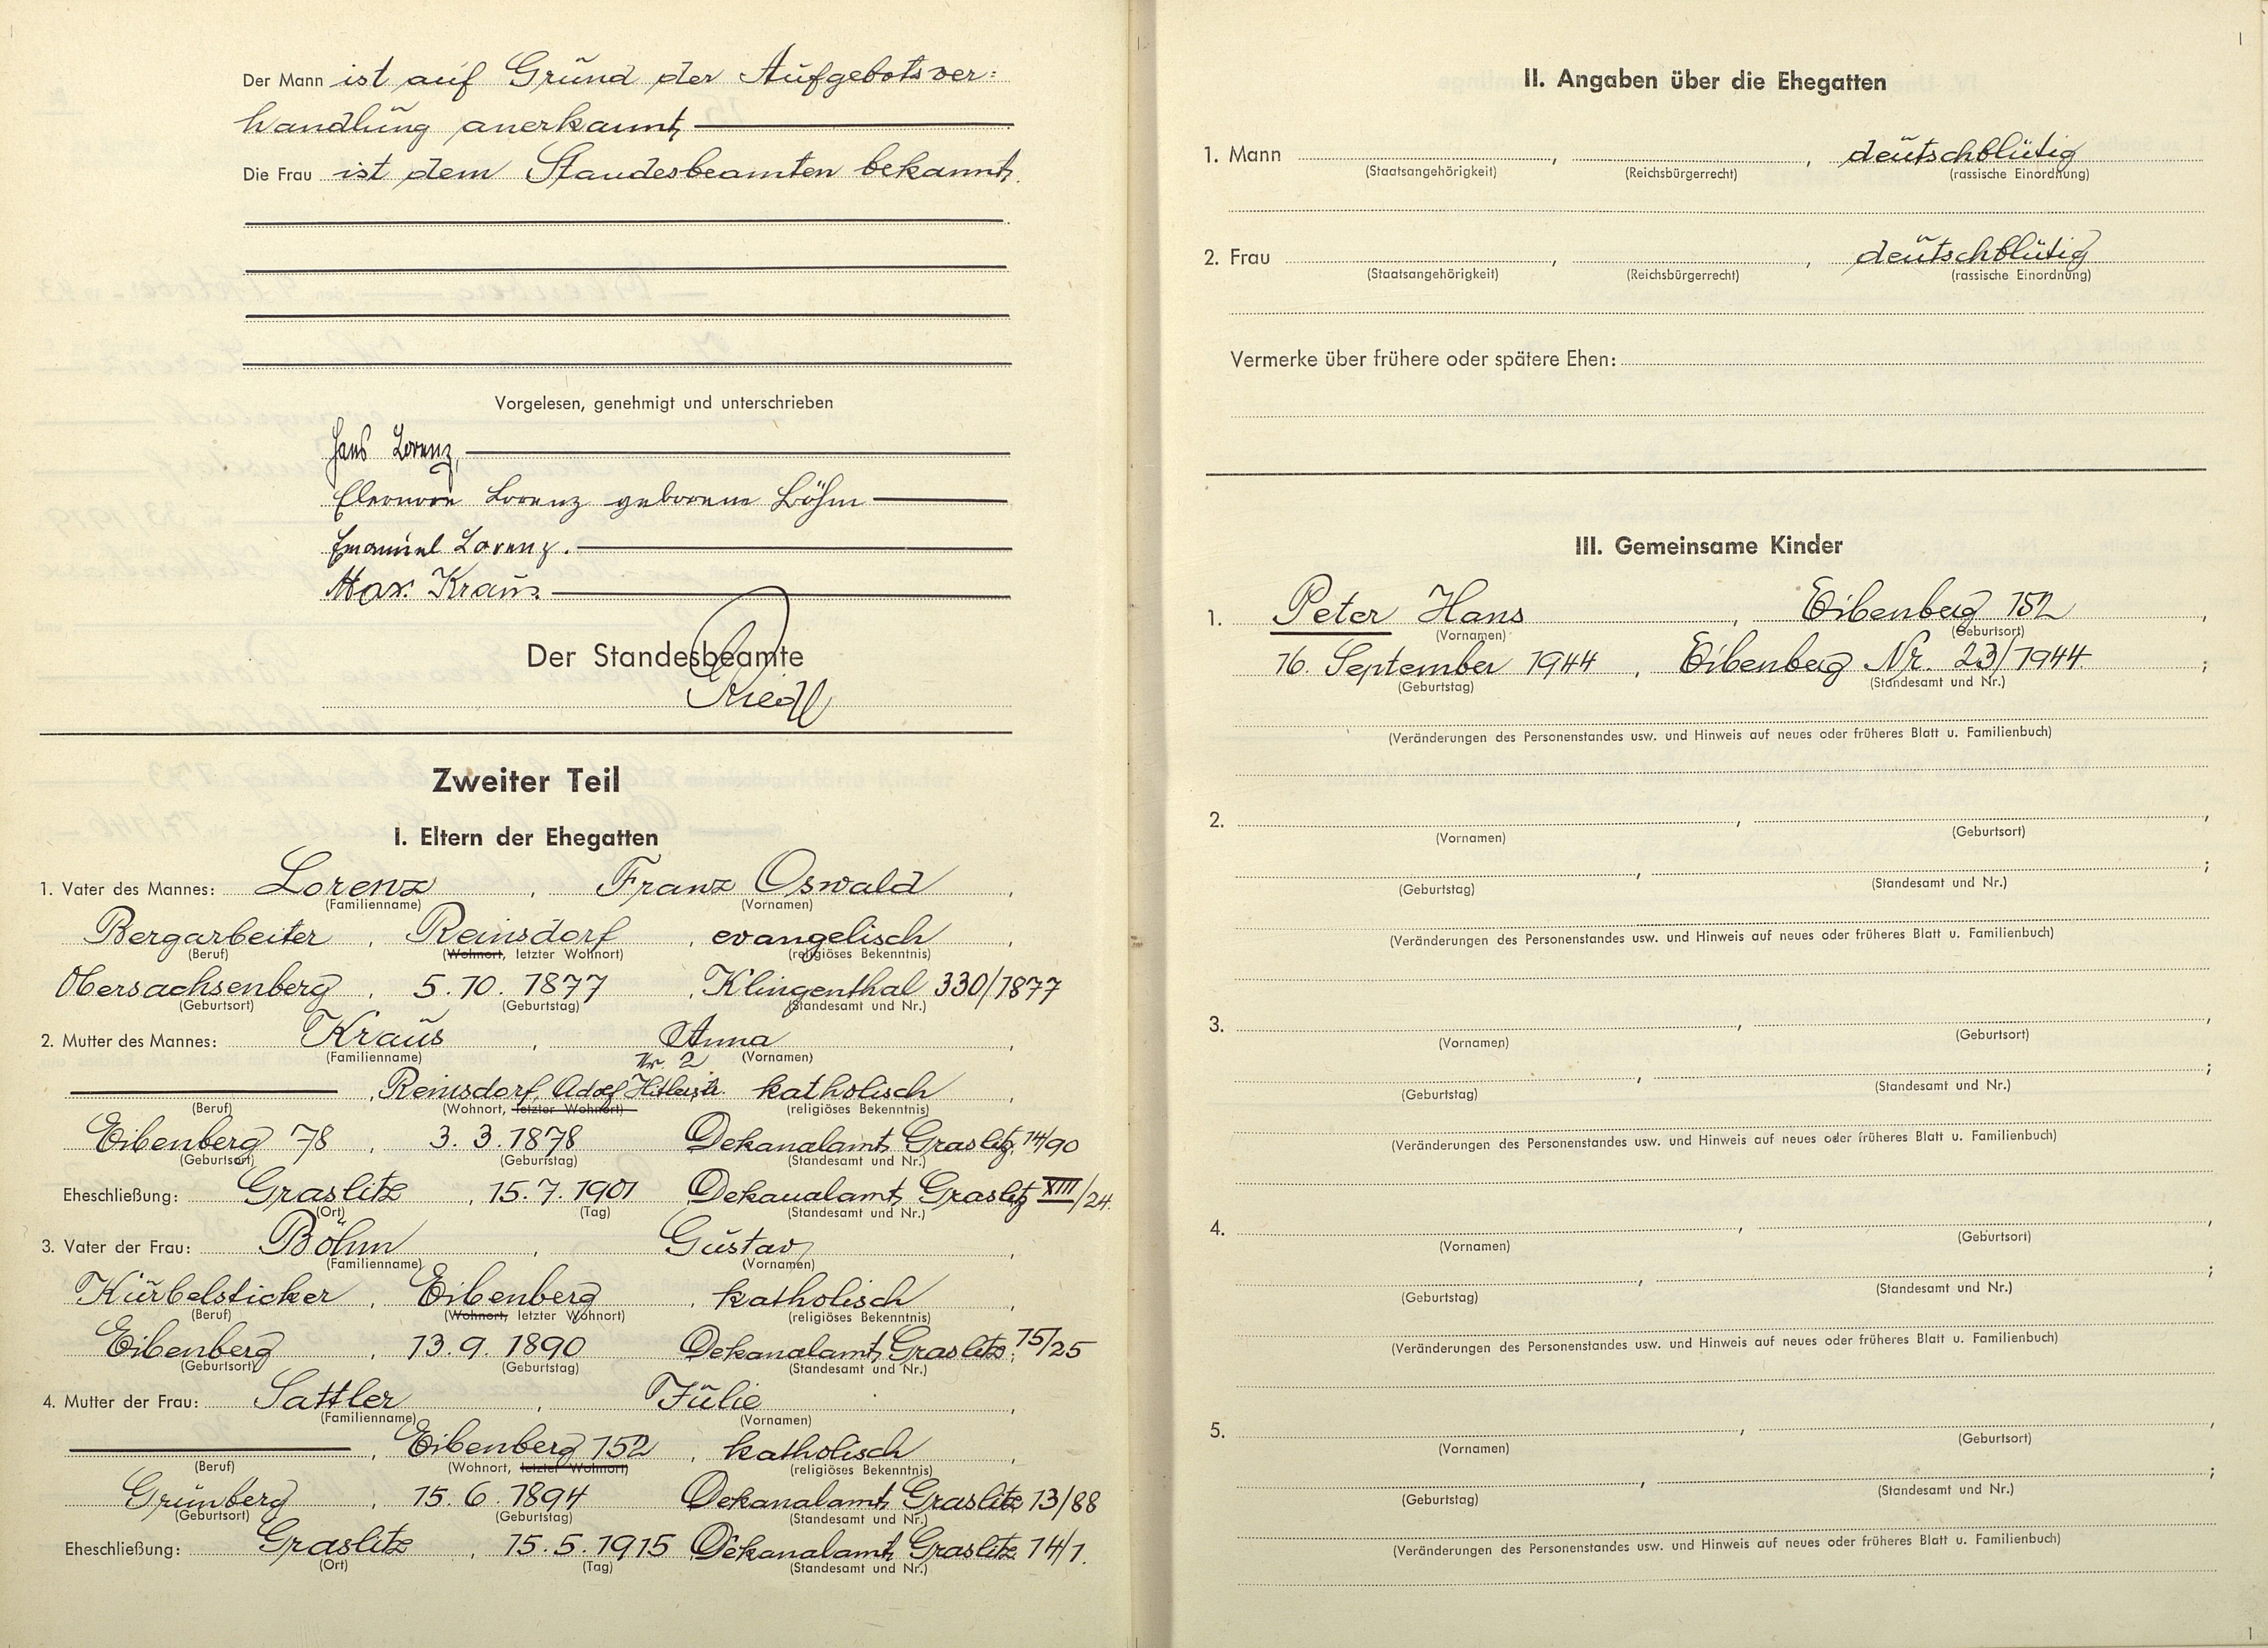 Der Mann ist auf Grund der Aufgebotsver:
handlung anerkannt
Die Frau ist dem Standesbeamten bekannt.
Vorgelesen, genehmigt und unterschrieben
Hans Lorenz,
Eleonore Lorenz geborene Böhm
Emanuel Lorenz.
Max Kraus.
Der Standesbeamte
Riedl
Zweiter Teil
I. Eltern der Ehegatten
1. Vater des Mannes: Lorenz, Franz Oswald,
(Familienname) (Vornamen)
Bergarbeiter, Reinsdorf, evangelisch,
(Beruf) (Wohnort, letzter Wohnort) (religiöses Bekenntnis)
Obersachsenberg, 5.10.1877, Klingenthal 330/1877
(Geburtsort) (Geburtstag) (Standesamt und Nr.)
2. Mutter des Mannes: Kraus, Anna,
(Familienname) (Vornamen)
Nr. 2
, Reinsdorf, Adolf Hitlerstr. katholisch,
(Beruf) (Wohnort, letzter Wohnort) (religiöses Bekenntnis)
Eibenberg 78, 3.3.1878 Dekanalamt Graslitz 14/90
(Geburtsort) (Geburtstag) (Standesamt und Nr.)
Eheschließung: Graslitz, 15.7.1901 Dekanalamt Graslitz XIII/24.
(Ort) (Tag) (Standesamt und Nr.)
3. Vater der Frau: Böhm, Gustav,
(Familienname) (Vornamen)
Kurbelsticker, Eibenberg, katholisch,
(Beruf) (Wohnort, letzter Wohnort) (religiöses Bekenntnis)
Eibenberg, 13.9.1890 Dekanalamt Graslitz 15/25
(Geburtsort) (Geburtstag) (Standesamt und Nr.)
4. Mutter der Frau: Sattler, Julie,
(Familienname) (Vornamen)
, Eibenberg 152, katholisch,
(Beruf) (Wohnort, letzter Wohnort) (religiöses Bekenntnis)
Grünberg, 15.6.1894 Dekanalamt Graslitz 13/88
(Geburtsort) (Geburtstag) (Standesamt und Nr.)
Eheschließung: Graslitz, 15.5.1915 Dekanalamt Graslitz 14/1.
(Ort) (Tag) (Standesamt und Nr.)
II. Angaben über die Ehegatten
1. Mann , , deutschblütig
(Staatsangehörigkeit) (Reichsbürgerrecht) (rassische Einordnung)
2. Frau , , deutschblütig
(Staatsangehörigkeit) (Reichsbürgerrecht) (rassische Einordnung)
Vermerke über frühere oder spätere Ehen:
III. Gemeinsame Kinder
1. Peter Hans, Eibenberg 152,
(Vornamen) (Geburtsort)
16. September 1944, Eibenberg Nr. 23/1944;
(Geburtstag) (Standesamt und Nr.)
(Veränderungen des Personenstandes usw. und Hinweis auf neues oder früheres Blatt u. Familienbuch)
2. , ,
(Vornamen) (Geburtsort)
, ;
(Geburtstag) (Standesamt und Nr.)
(Veränderungen des Personenstandes usw. und Hinweis auf neues oder früheres Blatt u. Familienbuch)
3. , ,
(Vornamen) (Geburtsort)
, ;
(Geburtstag) (Standesamt und Nr.)
(Veränderungen des Personenstandes usw. und Hinweis auf neues oder früheres Blatt u. Familienbuch)
4. , ,
(Vornamen) (Geburtsort)
, ;
(Geburtstag) (Standesamt und Nr.)
(Veränderungen des Personenstandes usw. und Hinweis auf neues oder früheres Blatt u. Familienbuch)
5. , ,
(Vornamen) (Geburtsort)
, ;
(Geburtstag) (Standesamt und Nr.)
(Veränderungen des Personenstandes usw. und Hinweis auf neues oder früheres Blatt u. Familienbuch)